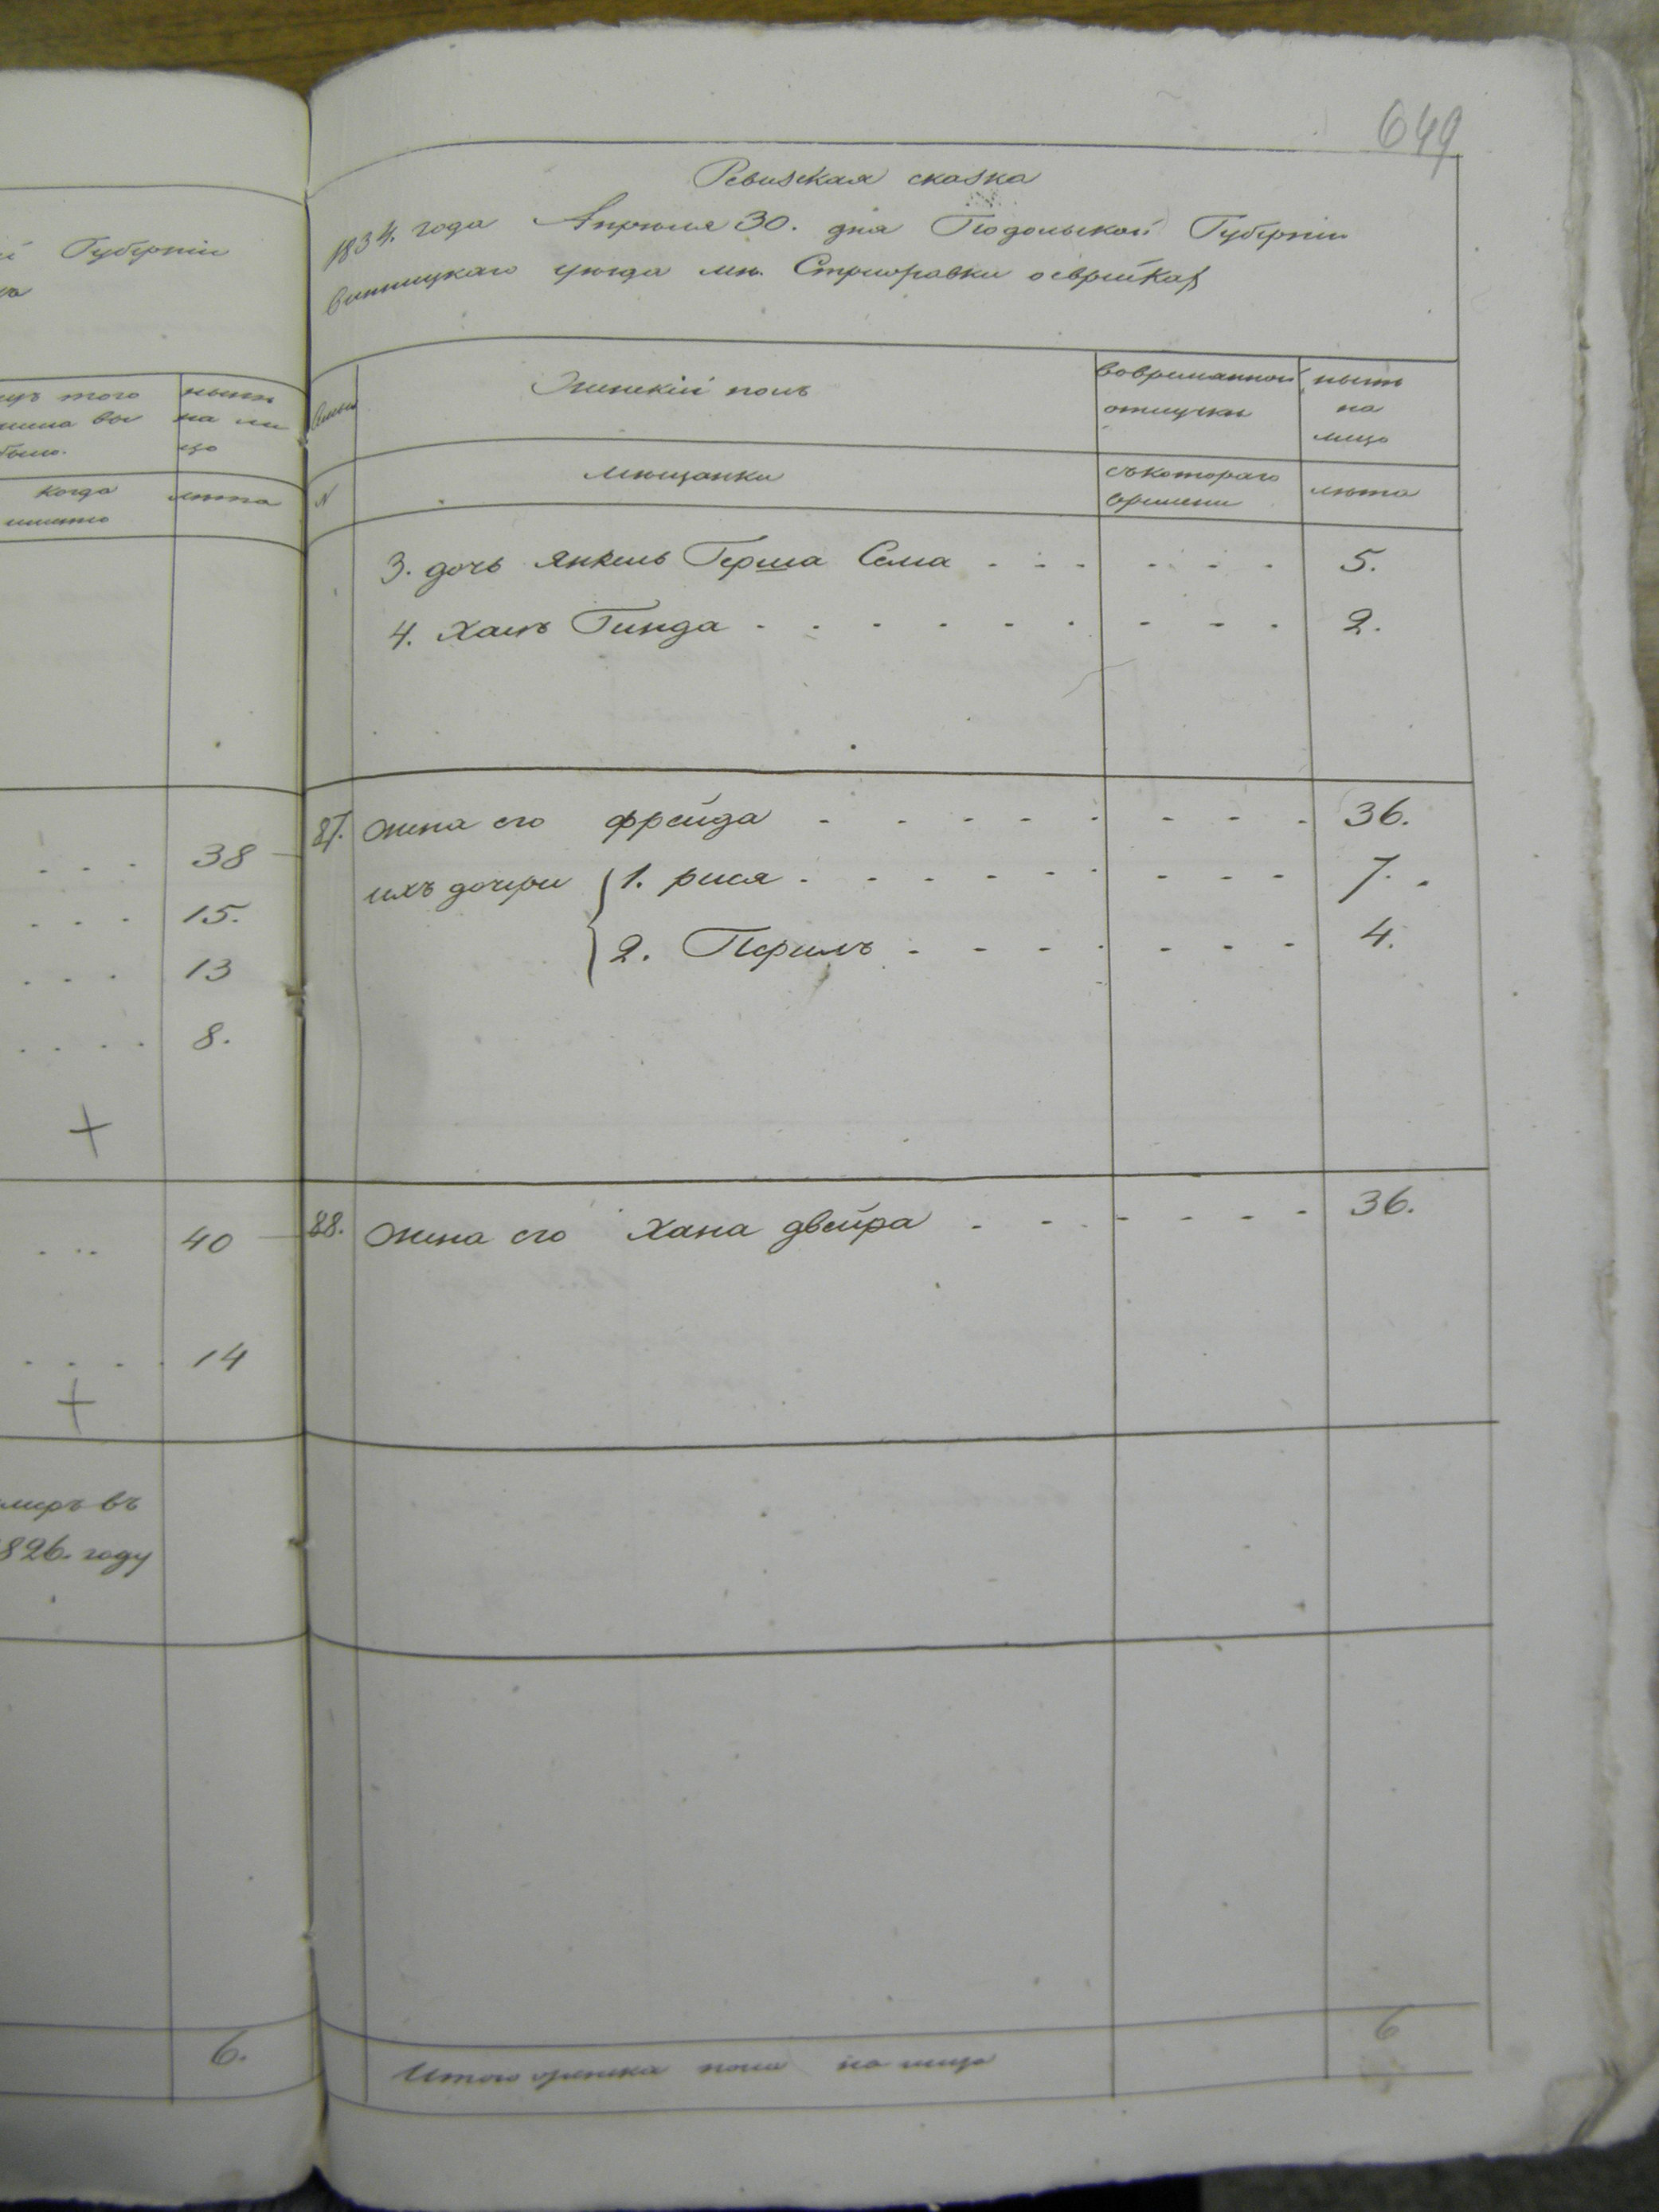 й Губернiи
ца
ныне
на ли
цо
когда
лета
38
15.
13
8.
+
40
14
+
въ
1826. году
6.
649
Ревизская сказка
1834. года Апреля 30. дня Подольской Губернiи
Винницкаго уезда мк. Стрижавки о еврейках
Женскiй полъ
вовременной
отлучки
ныне
на
лицо
№
мещанки
съ котораго
времени
лета
3. дочь Янкель Герша Сема - - - - - - 5.
4. Хаит Гинда - - - - - - - - - 2.
87. жена его фрейда - - - - - - - - - 36.
ихъ дочери 1. рися - - - - - - - - - 7.
2. Перилъ - - - - - - - 4.
88. жена его Хана двейра - - - - - - 36.
Итого женска пола на лицо 6